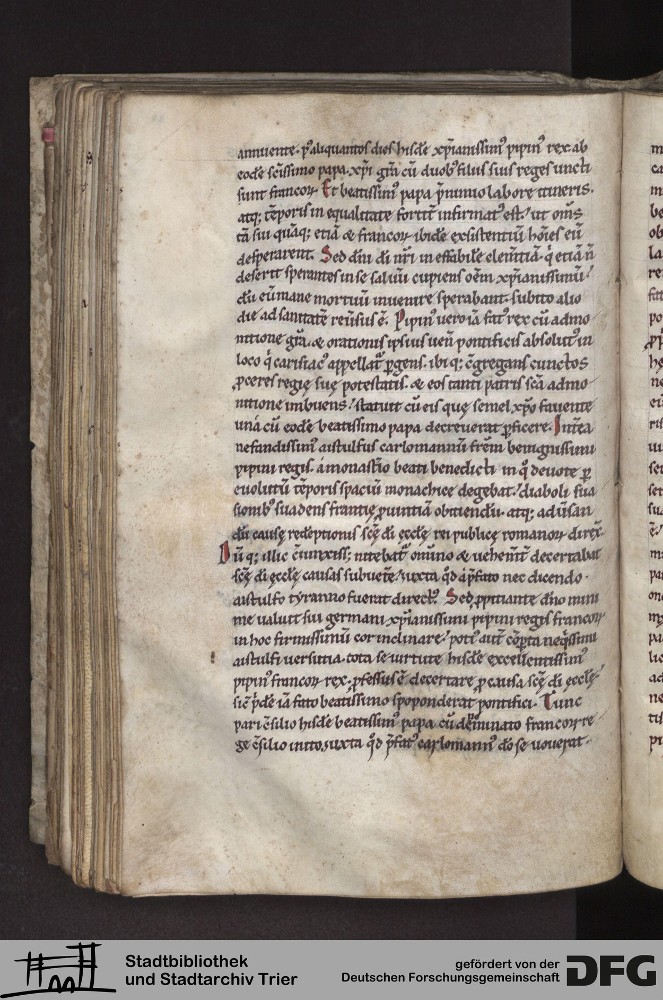 annuente. p' aliquantos dies hisdē xp̄ianissim' pipin' rex ab
eodē sc̄issimo papa. xp̄i gr̄a cū duob; filiis suis reges uncti
sunt francoꝝ. Et beatissim' papa p̄ nimio labore itineris.
atq; tēporis inequalitate fortit̄ infirmat' est. ut om̄s
tā sui quāq; etiā & francoꝝ ibidē exsistentiū hōies eū
desperarent. Sed dn̄i di nr̄i ineffabilē clem̄tiā. q̇ etiā n̄
deserit sperantes in se saluū cupiens oēm xp̄ianissimū.
dū eū mane mortuū inuenire sperabant. subito alio
die ad sanitatē reūsus ē. Pipin' uero iā fat' rex cū admo
nitione gr̄a. & orationis ipsius ueñ pontificis absolut' in
loco q̇ carisiac' appellat' ꝑgens. ibiq; c̄gregans cunctos
ꝓceres regię suę potestatis. & eos tanti patris sc̄a admo
nitione imbuens. statuit cū eis que semel xp̄o fauente
unā cū eodē beatissimo papa decreuerat ꝑficere. Int̄ea
nefandissim' aistulfus carlomannū frēm benignissimi
pipini regis. a monast̄io beati benedicti in q̊ deuote ꝑ
euolutū tēporis spaciū monachice degebat. diaboli sua
sionib' suadens francię ꝓuintiā obtiendū. atq; aduersan
dū causę redēptionis scę̄ di ęcclę rei publicę romanoꝝ direx̄.
Dūq; illic c̄iunxiss; nitebat' om̄ino & uehem̄t̄ decertabat
scę̄ di ęcclę causas subuert̄e. iuxta qd̄ a p̄fato nec dicendo
aistulfo tyranno fuerat direct'. Sed ꝓpitiante dn̄o mini
me ualuit sui germani xp̄ianissimi pipini regis francoꝝ
in hoc firmissimū cor inclinare. poti' aut̄ cōꝑta neq̇ssimi
aistulfi uersutia. tota se uirtute hisdē excellentissim'
pipin' francoꝝ rex. ꝓfessus ē decertare ꝓ causa scę̄ di ęcclę.
sic̄ p̄dē iā fato beatissimo spoponderat pontifici. Tunc
pari c̄silio hisdē beatissim' papa cū deñminato francoꝝ re
ge c̄silio inito. iuxta qd̄ p̄fat' carlomann' dō se uouerat.
Stadtbibliothek
und Stadtarchiv Trier
gefördert von der
Deutschen Forschungsgemeinschaft
DFG